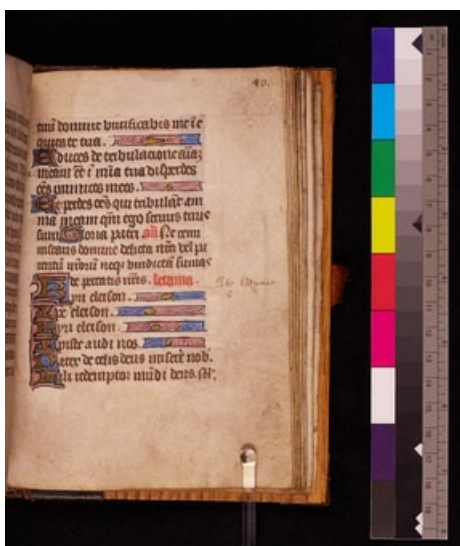 40.
tuum domine vivificabis me i e
quitate tua.
Educes de tribulacione aiam
meam et i mia tua disperdes
oes inimicos meos.
Et perdes oes qui tribulāt am
ma meam qm ego servus tuus
sum Gloria patri añ Ne remi
niscaris domine delicta nra vel pa
rentū nrorū neqz vindictā sumas
de peccatis nris. letania.
Kyri eleison.
Xpe eleison.
Kyri eleison.
Xpiste audi nos.
Pater de celis deus misere nob.
Fili redemptor mūdi deus. M